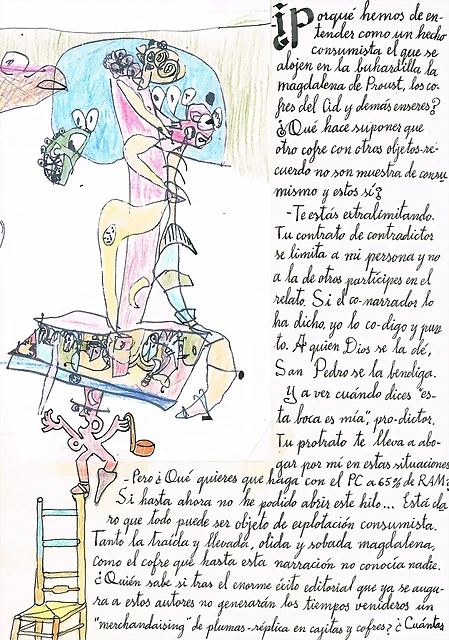 ¿Porqué hemos de en-
tender como un hecho
consumista el que se
alojen en la buhardilla la
magdalena de Proust, los co-
fres del Cid y demás enseres?
¿Qué hace suponer que
otro cofre con otros objetos-re-
cuerdo no son muestra de consu
mismo y estos sí?
-Te estás extralimitando.
Tu contrato de contradictor
se limita a mi persona y no
a la de otros partícipes en el
relato. Si el co-narrador lo
ha dicho, yo lo co-digo y pun
to. A quien Dios se la dé,
San Pedro se la bendiga.
Y a ver cuándo dices "es-
ta boca es mía", pro-dictor.
Tu protrato te lleva a abo-
gar por mí en estas situaciones
-Pero ¿Qué quieres que haga con el PC a 65% de RAM?
Si hasta ahora no he podido abrir este hilo... Está cla
ro que todo puede ser objeto de explotación consumista.
Tanto la traída y llevada, olida y sobada magdalena,
como el cofre que hasta esta narración no conocía nadie.
¿Quién sabe si tras el enorme éxito editorial que ya se augu-
ra a estos autores no generarán los tiempos venideros un
"merchandaising" de plumas-réplica en cajitas y cofres? ¿Cuántos